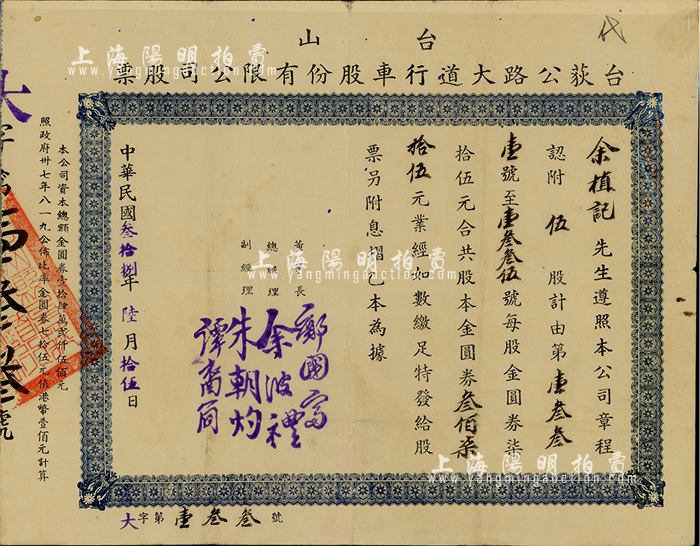 台山
台荻公路大道行車股份有限公司股票
余植記先生遵照本公司章程
認附伍股計由第壹叁叁
壹號至壹叁叁伍號每股金圓券柒
拾伍元合共股本金圓券叁佰柒
拾伍元業經如數繳足特發給股
票另附息摺乙本為據
董事長
總經理
副經理
鄺國富
余波禮
朱朝灼
譚裔
中華民國叁拾捌年陸月拾伍日
本公司資本總額金圓券壹拾肆萬貳仟伍佰元
照政府卅七年八一九公佈比率金圓券七拾五元值港幣壹佰元計算
大字第壹叁叁號
大字第
叁叁號
上海陽明拍賣
www.yangmingauction.com
上海陽明拍賣
www.yangmingauction.com
上海陽明拍賣
www.yangmingauction.com